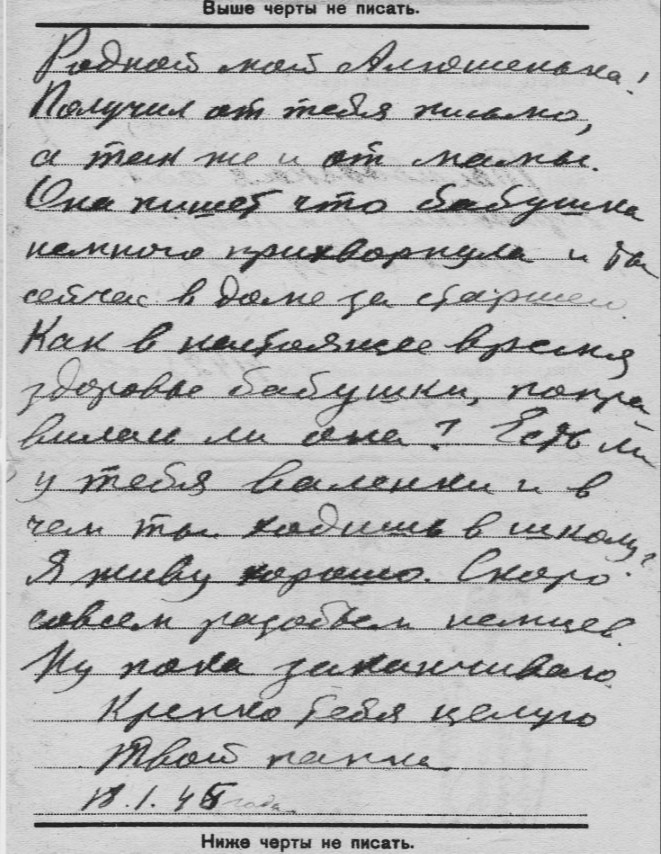 Выше черты не писать.
Родной мой Алюшенька!
Получил от тебя письмо,
а так же и от мамы.
Она пишет что бабушка
немного прихворнула и ты
сейчас в доме за старшего.
Как в настоящее время
здоровье бабушки, попра
вилась ли она? Есть ли
у тебя валенки и в
чем ты ходишь в школу?
Я живу хорошо. Скоро
совсем разобьем немцев.
Ну пока заканчиваю.
Крепко тебя целую
Твой папка
18.1.45 года.
Ниже черты не писать.